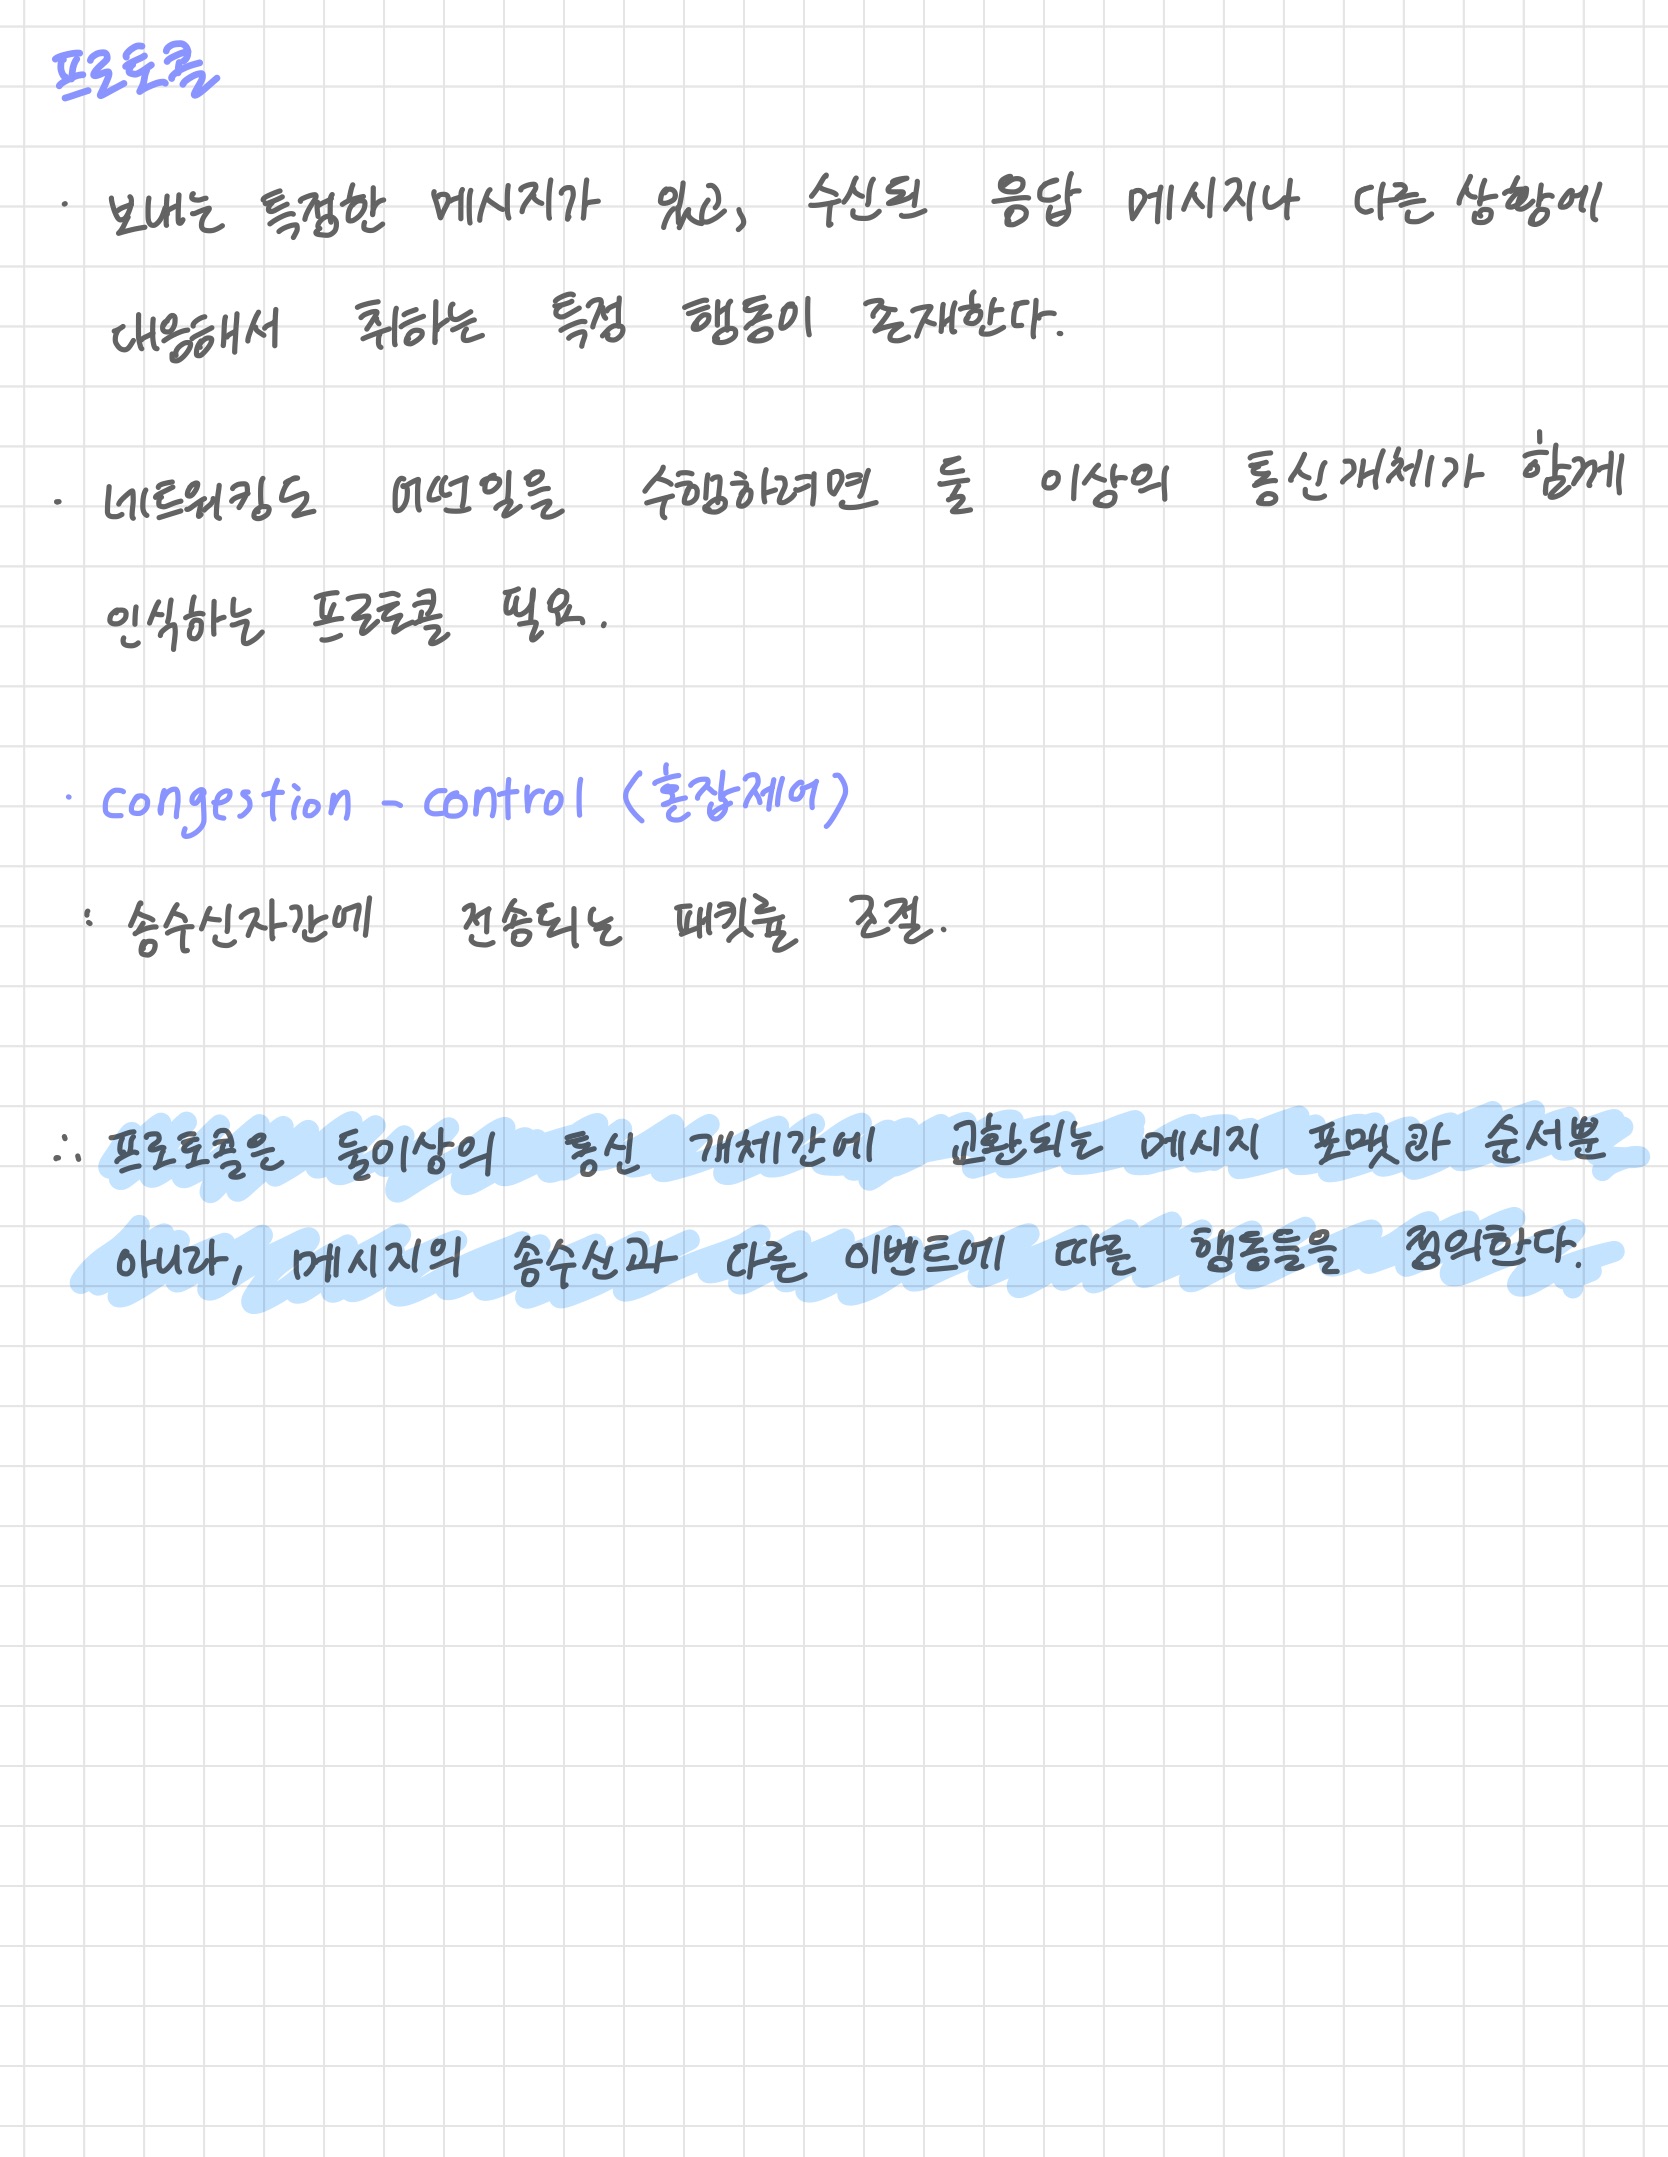 프로토콜
· 보내는 특정한 메시지가 있고, 수신된 응답 메시지나 다른 상황에
대응해서 취하는 특정 행동이 존재한다.
· 네트워킹도 어떠일을 수행하려면 둘 이상의 통신개체가 함께
인식하는 프로토콜 필요.
· congestion - control (혼잡제어)
: 송수신자간에 전송되는 패킷률 조절.
∴ 프로토콜은 둘이상의 통신 개체간에 교환되는 메시지 포맷과 순서뿐
아니라, 메시지의 송수신과 다른 이벤트에 따른 행동들을 정의한다.